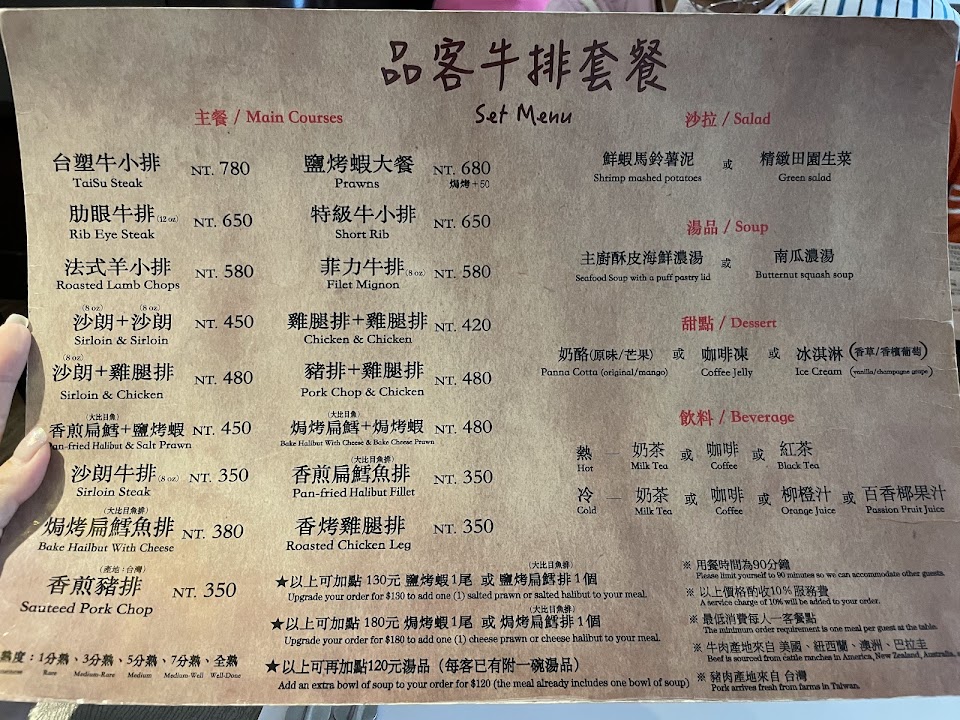 品客牛排套餐
Set Menu
主餐 / Main Courses
台塑牛小排 NT. 780
TaiSu Steak
肋眼牛排(12 oz) NT. 650
Rib Eye Steak
法式羊小排 NT. 580
Roasted Lamb Chops
(8 oz) (8 oz)
沙朗+沙朗 NT. 450
Sirloin & Sirloin
(8 oz)
沙朗+雞腿排 NT. 480
Sirloin & Chicken
(大比目魚)
香煎扁鱈+鹽烤蝦 NT. 450
Pan-fried Halibut & Salt Prawn
沙朗牛排(8 oz) NT. 350
Sirloin Steak
(大比目魚排)
焗烤扁鱈魚排 NT. 380
Bake Hailbut With Cheese
(產地:台灣)
香煎豬排 NT. 350
Sauteed Pork Chop
熟度:1分熟、3分熟、5分熟、7分熟、全熟
Rare Medium-Rare Medium Medium-Well Well-Done
鹽烤蝦大餐 NT. 680
Prawns 焗烤+50
特級牛小排 NT. 650
Short Rib
菲力牛排(8 oz) NT. 580
Filet Mignon
雞腿排+雞腿排 NT. 420
Chicken & Chicken
豬排+雞腿排 NT. 480
Pork Chop & Chicken
(大比目魚)
焗烤扁鱈+焗烤蝦 NT. 480
Bake Halibut With Cheese & Bake Cheese Prawn
(大比目魚排)
香煎扁鱈魚排 NT. 350
Pan-fried Halibut Fillet
香烤雞腿排 NT. 350
Roasted Chicken Leg
(大比目魚排)
★以上可加點 130元 鹽烤蝦1尾 或 鹽烤扁鱈排1個
Upgrade your order for $130 to add one (1) salted prawn or salted halibut to your meal.
(大比目魚排)
★以上可加點 180元 焗烤蝦1尾 或 焗烤扁鱈排1個
Upgrade your order for $180 to add one (1) cheese prawn or cheese halibut to your meal.
★以上可再加點120元湯品(每客已有附一碗湯品)
Add an extra bowl of soup to your order for $120 (the meal already includes one bowl of soup)
沙拉 / Salad
鮮蝦馬鈴薯泥 或 精緻田園生菜
Shrimp mashed potatoes Green salad
湯品 / Soup
主廚酥皮海鮮濃湯 或 南瓜濃湯
Seafood Soup with a puff pastry lid Butternut squash soup
甜點 / Dessert
奶酪(原味/芒果) 或 咖啡凍 或 冰淇淋(香草/香檳葡萄)
Panna Cotta (original/mango) Coffee Jelly Ice Cream (vanilla/champagne grape)
飲料 / Beverage
熱 — 奶茶 或 咖啡 或 紅茶
Hot Milk Tea Coffee Black Tea
冷 — 奶茶 或 咖啡 或 柳橙汁 或 百香椰果汁
Cold Milk Tea Coffee Orange Juice Passion Fruit Juice
※ 用餐時間為90分鐘
Please limit yourself to 90 minutes so we can accommodate other guests.
※ 以上價格酌收10%服務費
A service charge of 10% will be added to your order.
※ 最低消費每人一客餐點
The minimum order requirement is one meal per guest at the table.
※ 牛肉產地來自 美國、紐西蘭、澳洲、巴拉圭
Beef is sourced from cattle ranches in America, New Zealand, Australia,
※ 豬肉產地來自 台灣
Pork arrives fresh from farms in Taiwan.